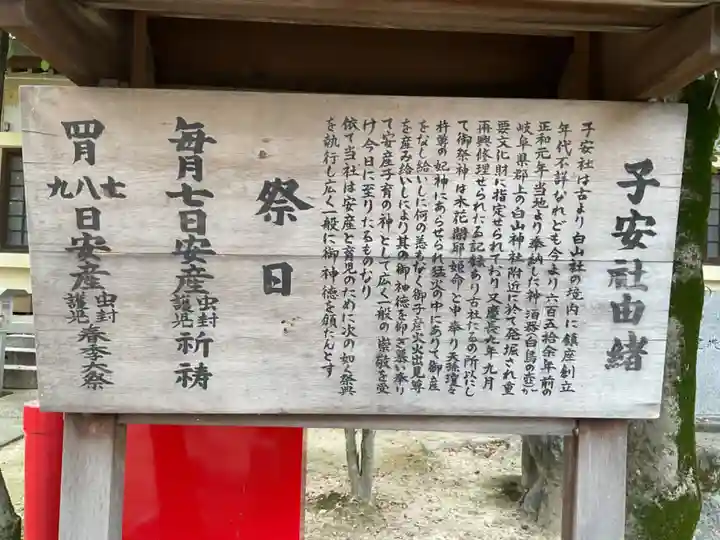 子安社由緒
子安社は古より白山社の境内に鎮座創立
年代不詳なれども今より六百五拾余年前の
正和元年当地より奉納した神酒器(白鳥の壺)が
岐阜県郡上の白山神社附近に於て発掘され重
要文化財に指定せられており又慶長九年九月
再興修理せられたる記録あり古社たるの所以にし
て御祭神は木花開耶姫命と申奉り天孫瓊々
杵尊の妃神にあらせられ猛火の中にありて御産
をなし給いしに何の恙もなく御子彦火火出見尊
を産み給いしにより其の御神徳を仰ぎ慕い奉り
て安産子育の神として広く一般の崇敬を受
け今日に至りたるものなり
依て当社は安産と育児のために次の如く祭典
を執行し広く一般に御神徳を頒たんとす
祭日
毎月七日安産虫封護児祈祷
四月七八九日安産虫封護児春季大祭